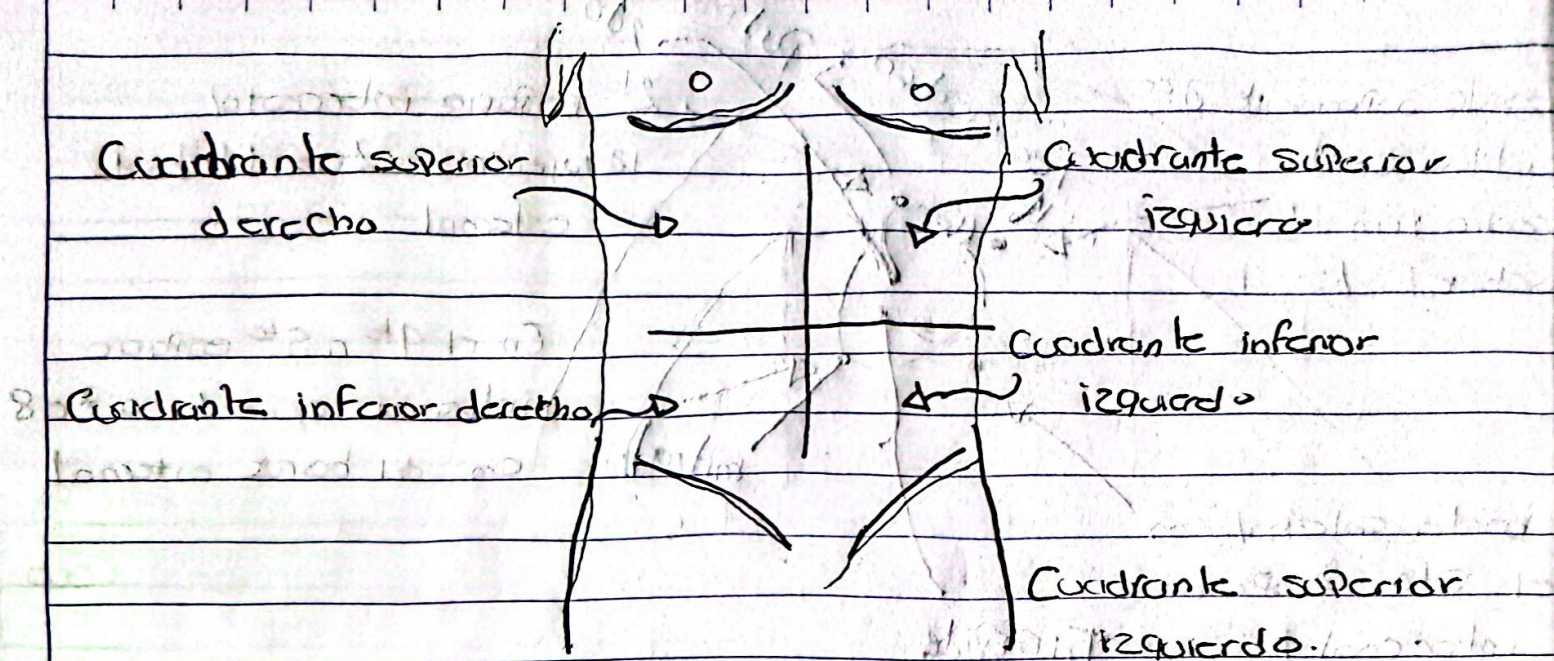 Cuadrante superior
derecho
Cuadrante superior
izquierо
Cuadrante inferior
izquierdo
Cuadrante inferior derecho
Cuadrante superior
izquierdo.